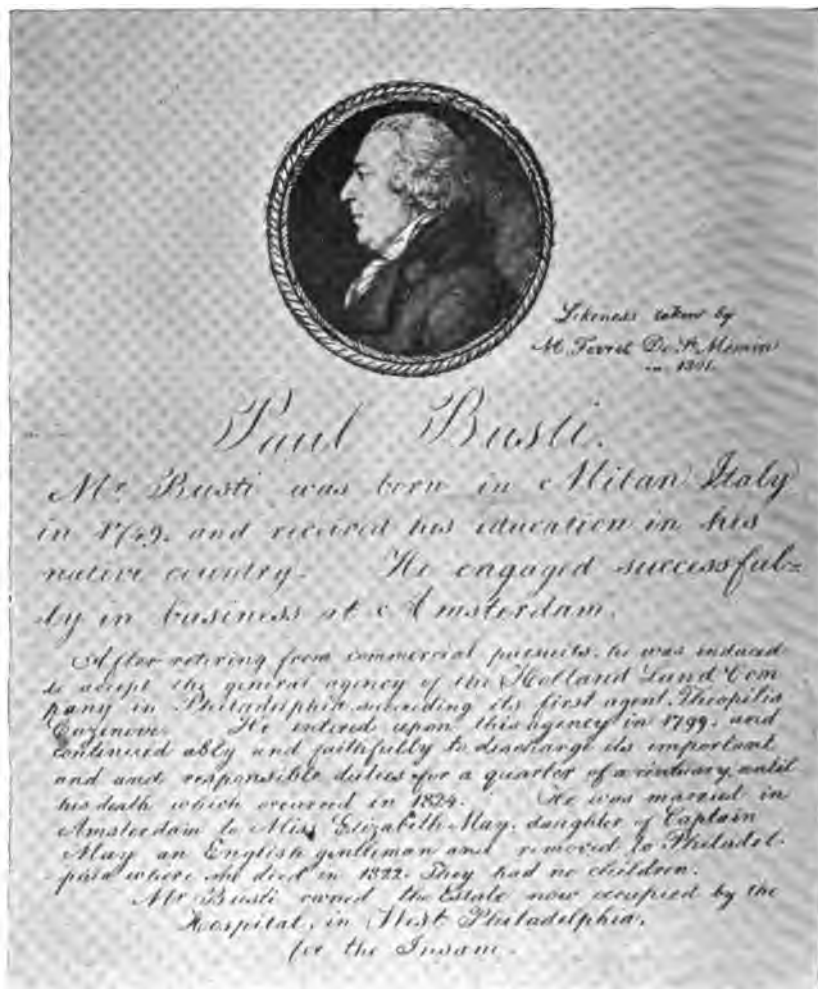 Likeness taken by
M. Fevret De St Memin
in 1801.
Paul Busti.
Mr Busti was born in Milan Italy
in 1749. and received his education in his
native country. He engaged successful=
ly in business at Amsterdam.
After retiring from commercial pursuits, he was induced
to accept the general agency of the Holland Land Com
pany in Philadelphia succeeding its first agent, Theopilis
Cazenove. He entered upon this agency in 1799. and
continued ably and faithfully to discharge its important
and and responsible duties for a quarter of a century, until
his death which occurred in 1824. He was married in
Amsterdam to Miss Elizabeth May, daughter of Captain
May an English gentleman and removed to Philadel-
phia where she died in 1822. They had no children.
Mr Busti owned the Estate now occupied by the
Hospital, in West Philadelphia,
for the Insane.